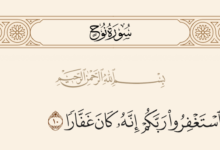 سُورَةُ نُوحٍ
بِسْمِ ٱللَّهِ ٱلرَّحْمَٰنِ ٱلرَّحِيمِ
ٱسْتَغْفِرُوا۟ رَبَّكُمْ إِنَّهُۥ كَانَ غَفَّارًا ١٠